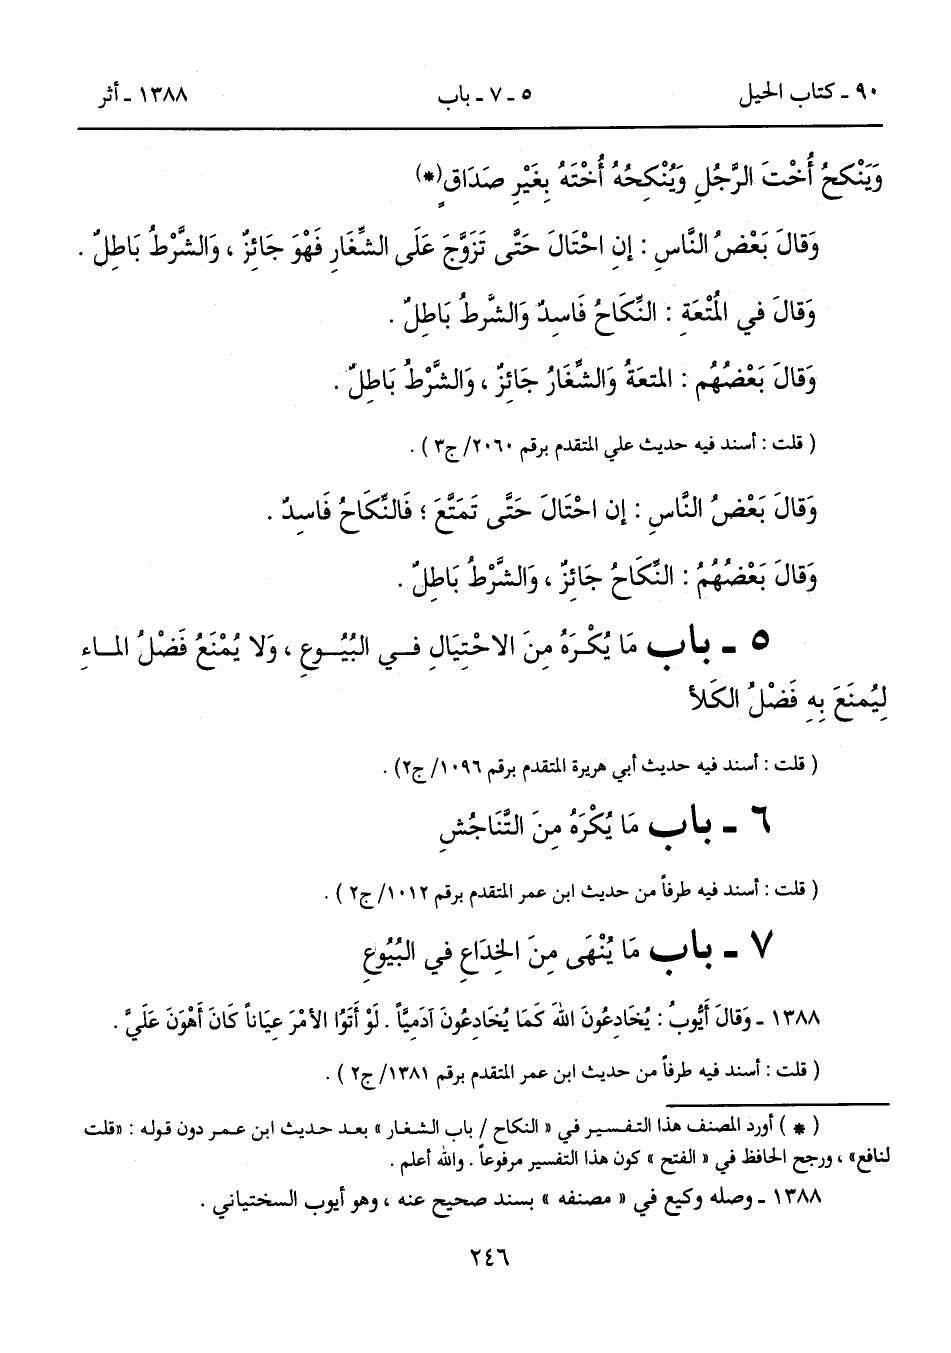 ٩٠ ـ كتاب الحيل ٥ ـ ٧ ـ باب ١٣٨٨ ـ أثر
وَيَنْكحُ أُخْتَ الرَّجُلِ وَيُنْكِحُهُ أُخْتَهُ بِغَيْرِ صَدَاقٍ(*)
وَقالَ بَعْضُ النَّاسِ : إنِ احْتَالَ حَتَّى تَزَوَّجَ عَلَى الشِّغَارِ فَهْوَ جَائِزٌ ، وَالشَّرْطُ بَاطِلٌ .
وَقالَ في المُتْعَةِ : النِّكَاحُ فَاسِدٌ وَالشَّرطُ بَاطِلٌ .
وَقالَ بَعْضُهُم : المتعَةُ وَالشِّغَارُ جَائِزٌ ، وَالشَّرْطُ بَاطِلٌ .
( قلت : أسند فيه حديث علي المتقدم برقم ٢٠٦٠/ ج٣ ) .
وَقالَ بَعْضُ النَّاسِ : إن احْتَالَ حَتَّى تَمَتَّعَ ؛ فَالنِّكَاحُ فَاسِدٌ .
وَقالَ بَعْضُهُمُ : النِّكَاحُ جَائِزٌ ، وَالشَّرْطُ بَاطِلٌ .
٥ ـ باب مَا يُكْرَهُ مِنَ الاحْتِيَالِ فـي البُيُـوعِ ، وَلا يُمْنَعُ فَضْلُ المـاءِ
لِيُمنَعَ بِهِ فَضْلُ الكَلأ
( قلت : أسند فيه حديث أبي هريرة المتقدم برقم ١٠٩٦/ ج٢) .
٦ ـ باب مَا يُكْرَهُ مِنَ التَّنَاجُشِ
( قلت : أسند فيه طرفاً من حديث ابن عمر المتقدم برقم ١٠١٢/ ج٢ ) .
٧ ـ باب مَا يُنْهَى مِنَ الخِدَاعِ في البُيُوعِ
١٣٨٨ ـ وَقالَ أَيُّوبُ : يُخَادِعُونَ اللهَ كَمَا يُخَادِعُونَ آدَمِيَّاً . لَوْ أَتَوُا الأمْرَ عِيَاناً كَانَ أَهْوَنَ عَلَيَّ .
( قلت : أسند فيه طرفاً من حديث ابن عمر المتقدم برقم ١٣٨١/ ج٢ ) .
( * ) أورد المصنف هذا التفسير في « النكاح / باب الشغار » بعد حديث ابن عمر دون قوله : «قلت
لنافع» ، ورجح الحافظ في « الفتح » كون هذا التفسير مرفوعاً . والله أعلم .
١٣٨٨ ـ وصله وكيع في « مصنفه » بسند صحيح عنه ، وهو أيوب السختياني .
٢٤٦